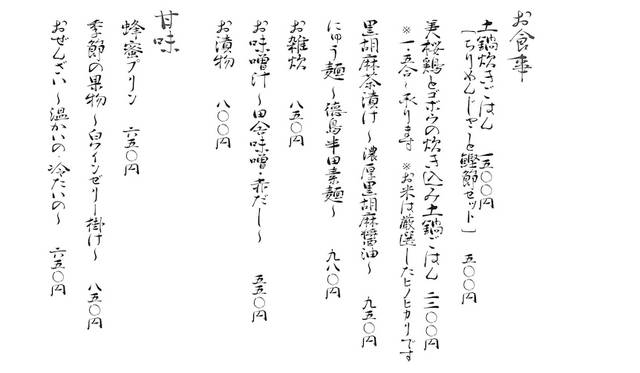 お食事
土鍋炊きごはん 一五〇〇円
[ちりめんじゃこと鰹節セット] 五〇〇円
美桜鶏とゴボウの炊き込み土鍋ごはん 二二〇〇円
※一・五合〜承ります ※お米は厳選したヒノヒカリです
黒胡麻茶漬け〜濃厚黒胡麻醤油〜 九五〇円
にゅう麺〜徳島半田素麺〜 九八〇円
お雑炊 八五〇円
お味噌汁〜田舎味噌・赤だし〜 五五〇円
お漬物 八〇〇円
甘味
蜂蜜プリン 六五〇円
季節の果物〜白ワインゼリー掛け〜 八五〇円
おぜんざい〜温かいの・冷たいの〜 六五〇円